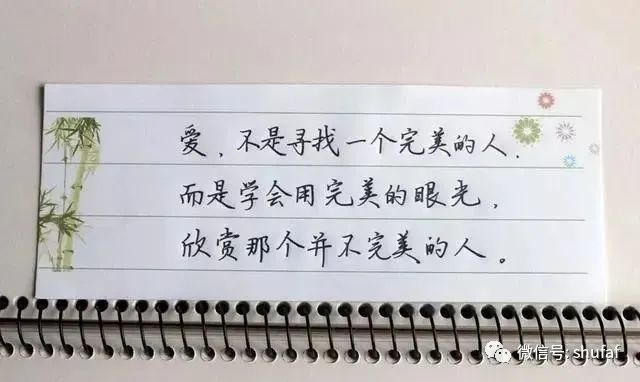 爱、不是寻找一个完美的人，
而是学会用完美的眼光，
欣赏那个并不完美的人。
微信号: shufaf